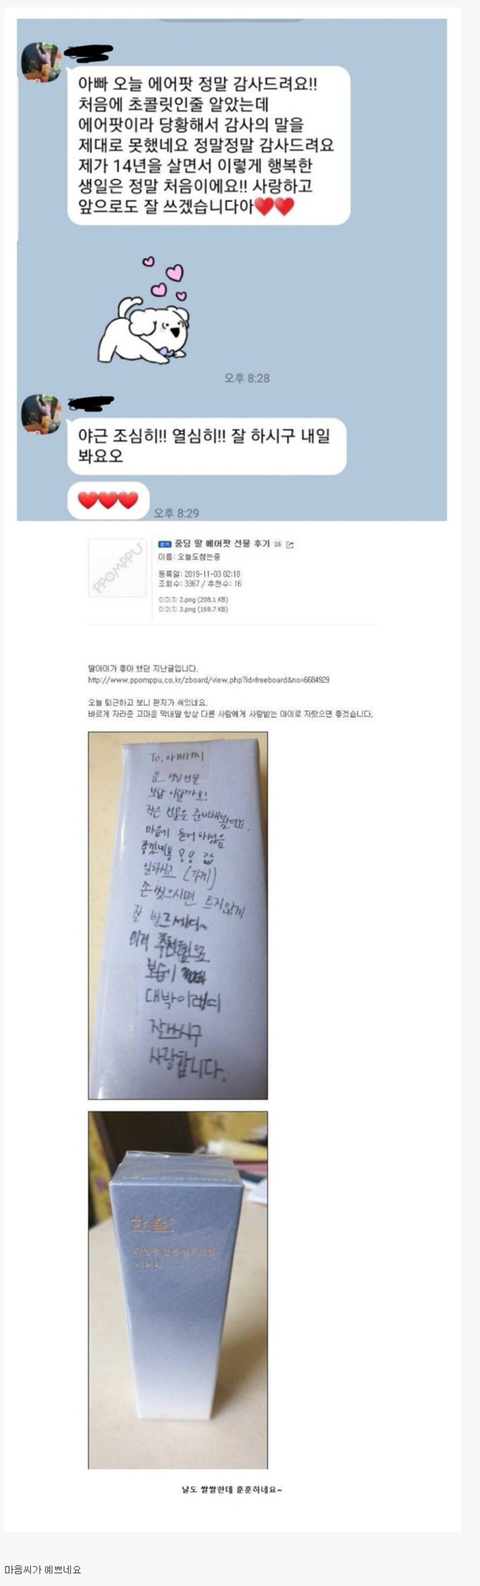 아빠 오늘 에어팟 정말 감사드려요!!
처음에 초콜릿인줄 알았는데
에어팟이라 당황해서 감사의 말을
제대로 못했네요 정말정말 감사드려요
제가 14년을 살면서 이렇게 행복한
생일은 정말 처음이에요!! 사랑하고
앞으로도 잘 쓰겠습니다아❤️❤️
오후 8:28
야근 조심히!! 열심히!! 잘 하시구 내일
봐요오
❤️❤️❤️
오후 8:29
PPOMPPU
중딩 딸 에어팟 선물 후기 16
이름: 오늘도참는중
등록일: 2019-11-03 02:18
조회수: 3367 / 추천수: 16
이미지 2.png (208.1 KB)
이미지 3.png (169.7 KB)
딸아이가 좋아 했던 지난글입니다.
http://www.ppomppu.co.kr/zboard/view.php?id=freeboard&no=6684929
오늘 퇴근하고 보니 편지가 써있네요.
바르게 자라준 고마운 막내딸 항상 다른 사람에게 사랑받는 아이로 자랐으면 좋겠습니다.
To. 아빠
생일선물
보답
작은 선물을 준비해봤어요.
마음에 들어
일하시고 (가게)
손 씻으시면 트지않게
잘
이거
보습이
대박이래여
잘쓰시구
사랑합니다.
한율
날도 쌀쌀한데 훈훈하네요~
마음씨가 예쁘네요